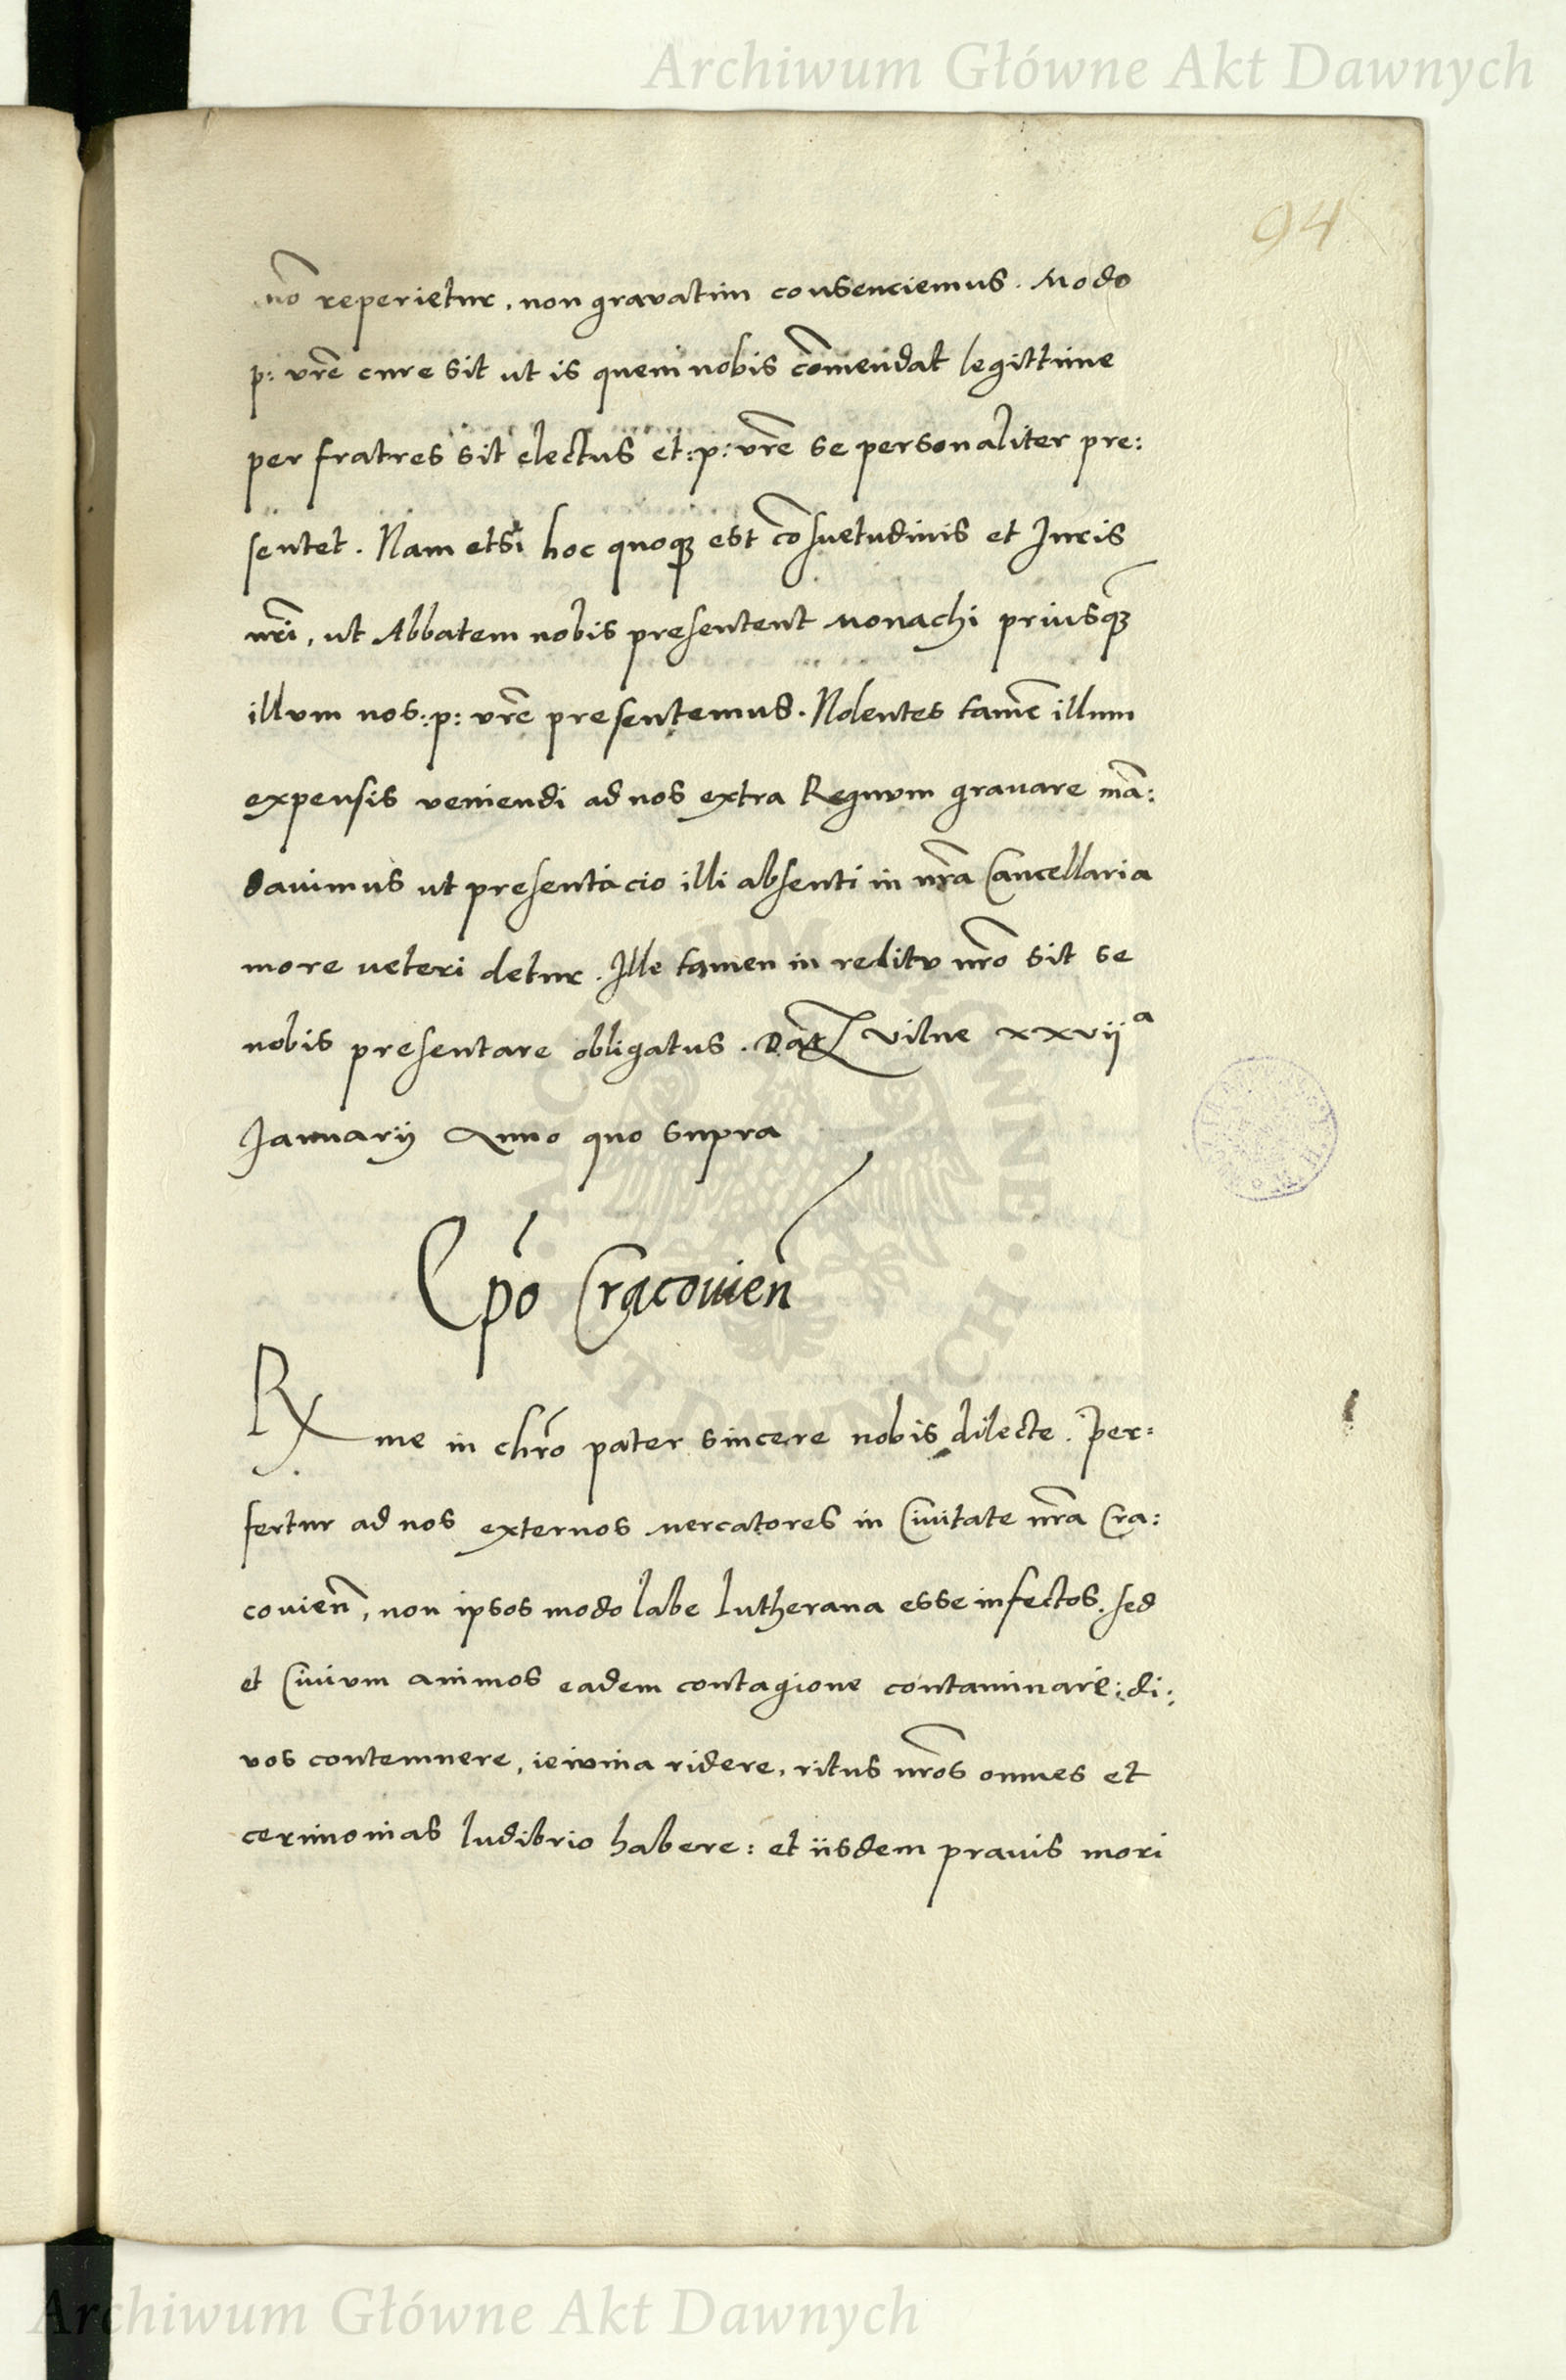 Archiwum Główne Akt Dawnych
94
nō reperietur, non gravatim consenciemus. Modo
p: vrē cure sit ut is quem nobis cōmendat legittime
per fratres sit electus et :p: vrē se personaliter pre:
sentet. Nam etsi hoc quoqꝫ est cōsuetudinis et Juris
nrī, ut Abbatem nobis presentent Monachi priusqꝫ
illvm nos :p: vrē presentemus. Nolentes tamē illum
expensis veniendi ad nos extra Regnvm gravare mā:
davimus ut presentacio illi absenti in nrā Cancellaria
more veteri detur. Ille tamen in reditv nrō sit se
nobis presentare obligatus. Dat̄ Vilne xxvii ª
Januarij Anno quo supra
Epō Cracovien̄
Rx me in chrō pater sincere nobis dilecte. Per=
fertur ad nos externos mercatores in Civitate nrā Cra:
covien̄, non ipsos modo labe Lutherana esse infectos, sed
et Civivm animos eadem contagione contaminare: di:
vos contemnere, ieivnia ridere, ritus nrōs omnes et
cerimonias ludibrio habere: et iisdem pravis mori
ARCHIWUM GŁÓWNE · AKT DAWNYCH ·
Archiwum Główne Akt Dawnych